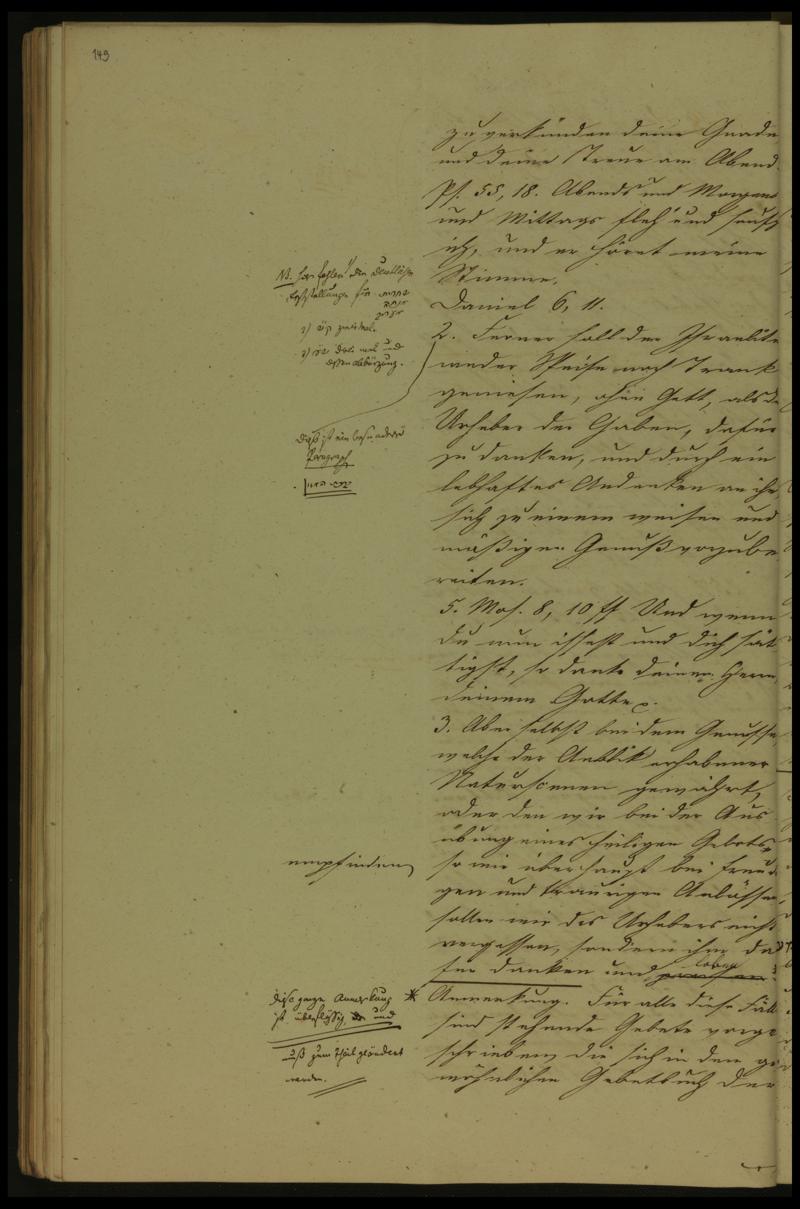 149
zu verkünden deine Gnade
und deine Treue am Abend.
Ps. 55, 18. Abends und Morgens
und Mittags fleh' und seufz
ich, und er höret meine
Stimme.
Daniel 6, 11.
2. Ferner soll der Israelite
weder Speise noch Trank
geniesen, ohne Gott, als de
Urheber der Gaben, dafür
zu danken, und durch ein
lebhaftes Andenken an ihn
sich zu einem weisen und
mäßigen Genuß vorzube
reiten.
5. Mos. 8, 10 ff Und wenn
du nun issest und dich sät
tigst, so danke deinem Herrn,
deinem Gotte
3. Aber selbst bei dem Genusse,
welche der Anblik erhabener
Naturscenen gewährt,
oder den wir bei der Aus
übung eines heiligen Gebots
empfinden
so wie überhaupt bei freud
gen und traurigen Anlässen,
sollen wir des Urhebers nicht
vergessen, sondern ihm da
für danken und loben
Anmerkung. Für alle diese Fäll
sind stehende Gebete vorge
schrieben, die sich in dem ge
wöhnlichen Gebetbuch der
NB. hier fehlen die
für שחרית
מנחה
מעריב
1) zweimal.
2) drei mal und
deren Abkürzung.
Dieß ist ein besonderer
Paragraph
ברכת המזון
Diese ganze Anmerkung *
ist überflüssig, und
muß zum Theil geändert
werden.